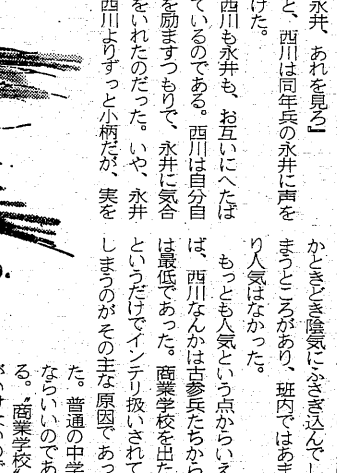 永井、あれを見ろ』
と、西川は同年兵の永井に声を
けた。
西川も永井も、お互いにへたば
ているのである。西川は自分自
を励ますつもりで、永井に気合
をいれたのだった。いや、永井
西川よりずっと小柄だが、実を
かときどき陰気にふさぎ込んでし
まうところがあり、班内ではあま
り人気はなかった。
もっとも人気という点からいえ
ば、西川なんかは古参兵たちから
は最低であった。商業学校を出た
というだけでインテリ扱いされて
しまうのがその主な原因であっ
た。普通の中学
ならいいのであ
る。〝商業学校